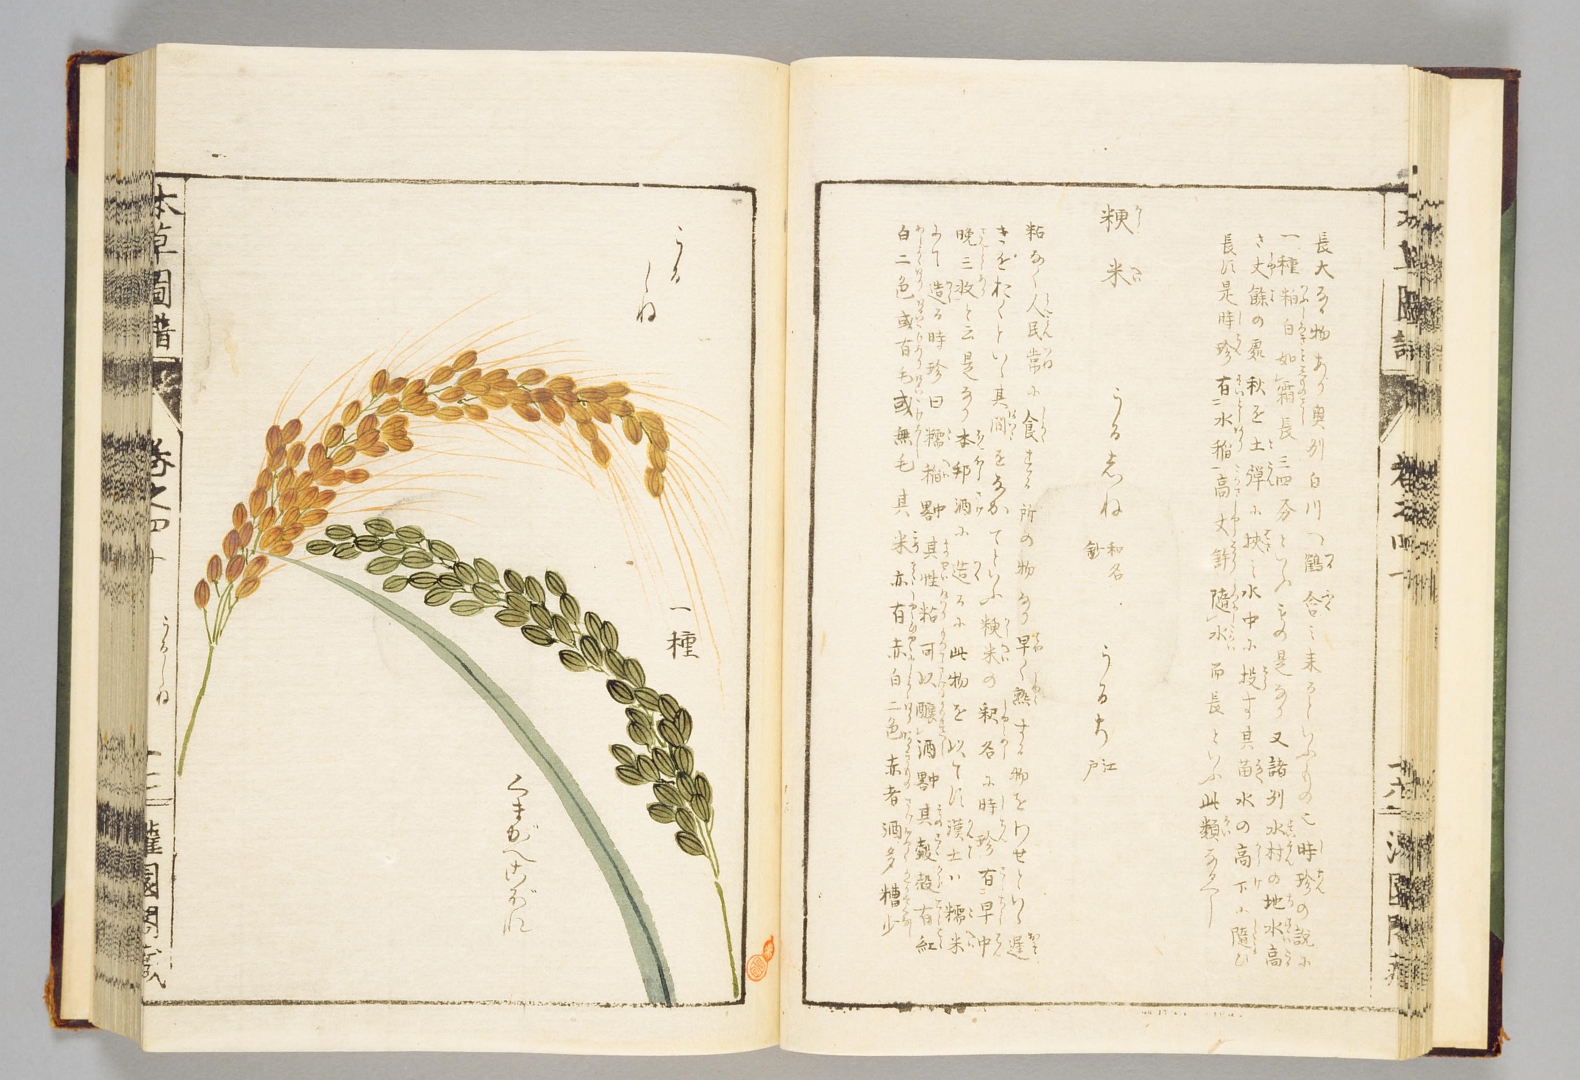 長大なる物あり奥州白川の鶴合に来るといふもの也時珍の説に
一種粒白如霜長三四分といふもの是なり又諸州水村の地水高
さ丈餘の處秋を土弾に挟み水中に投す其苗水の高下に隨ひ
長ず是時珍有水稲高丈許隨水而長といふ此類なるべし
粳米
うるしね 和名鈔
うるち 江戸
粘なく人民常に食する所の物なり早く熟する物をわせといひ遅
きをおくといひ其間をなかてといふ粳米の釈名に時珍有早中
晩三收と云是なり本邦酒に造るに此物を以てす漢土は糯米
にて造る時珍曰糯稲
其性粘可以釀酒
其穀殼有紅
白二色或有毛或無毛其米亦有赤白二色赤者酒多糟少
うるしね
一種
くまがへこぼれ
本草圖譜
卷之四十
うるしね
十三
灌園閣藏